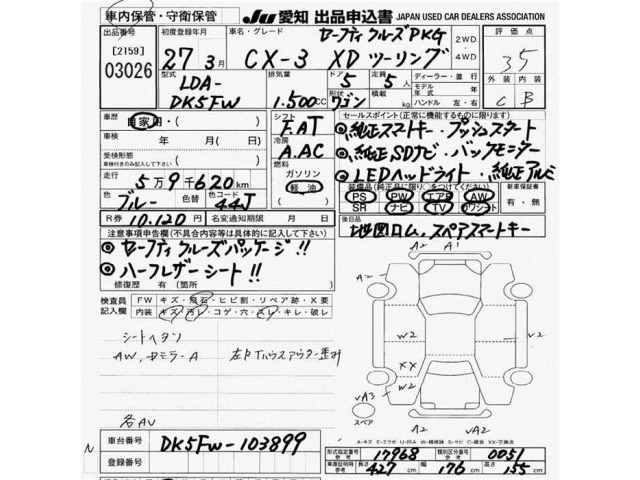 車内保管・守衛保管
JU 愛知 出品申込書 JAPAN USED CAR DEALERS ASSOCIATION
出品番号
[2159]
03026
初度登録年月
27年3月
車名・グレード
セーフティクルーズPKG
CX-3 XD ツーリング
2WD
4WD
評価点
3.5
型式
LDA-
DK5FW
排気量
1.500cc
ドア
5
形状
ワゴン
定員
5人
積載
kg
ディーラー・並行
モデル年式 年
ハンドル 左・右
外装 内装
C B
車歴
自家用・( )
車検
年 月( 日)
受検形態
車検付きのみ記入して下さい
( )
シフト
F.AT
冷房
A.AC
燃料
ガソリン
軽油
セールスポイント(正常に機能するものに限ります)
純正スマートキー・プッシュスタート
純正SDナビ・バックモニター
LEDヘッドライト・純正アルミ
走行
5万9千620km
色
ブルー
色替
色コード
44J
装備品(純正品に限り○をつけてください)
PS PW エアB AW
SR ナビ TV カワシート
新車保証書
有・無
R券 10.120円
名変通知期限 月 日
後日品
地図ロム、スペアスマートキー
注意事項申告欄(不具合内容等は具体的に記入して下さい)
セーフティクルーズパッケージ!!
ハーフレザーシート!!
修復歴 有(箇所 )
検査員記入欄
FW キズ・飛石・ヒビ割・リペア跡・X要
内装 キズ・汚レ・コゲ・穴・スレ・キレ・破レ
シートヘタリ
AW、ドミラーA
各AU
A2 A1
A2
W2
V2
XX
W2
VA3
スペア
A2 VA2
A-キズ E-エクボ U-凹A W-補修跡 S-サビ C-腐食 XX-交換済
N
車台番号
DK5FW-103899
登録番号
形式指定番号 17968 類別区分番号 0051
車庫証明用参考 長さ 427cm 幅 176cm 高さ 155cm